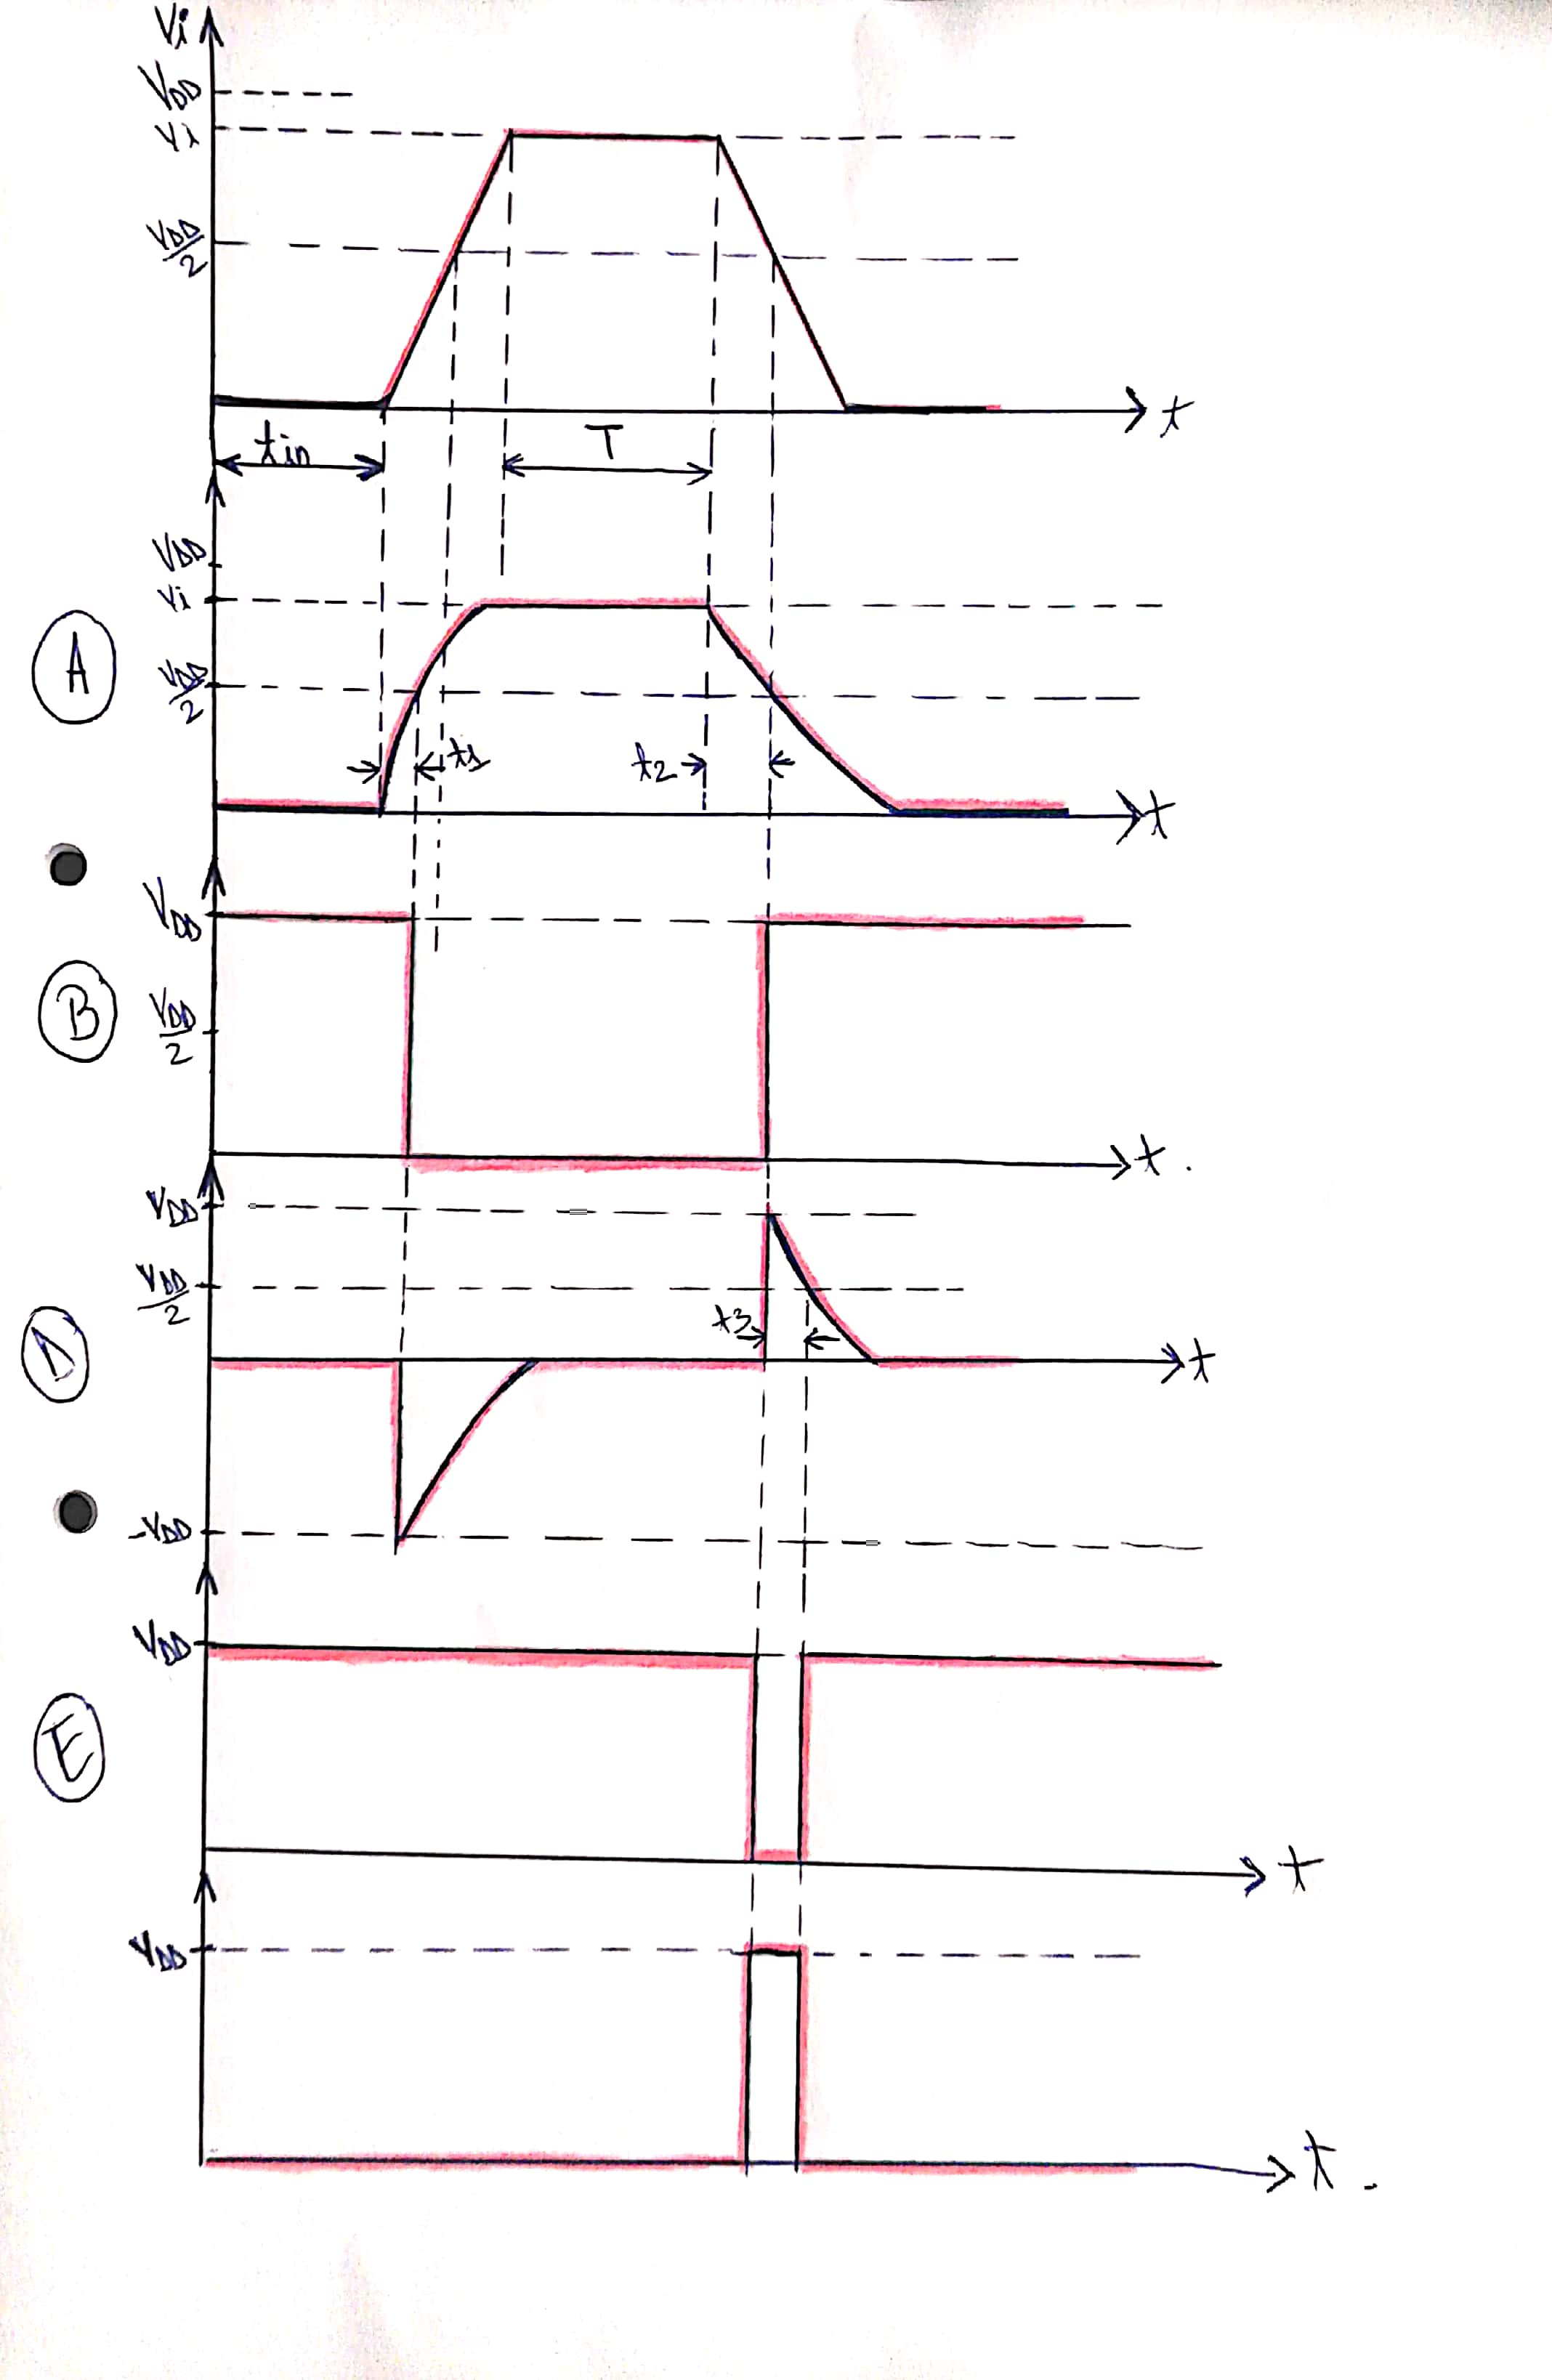 Vi
VDD
Vi
VDD/2
t
tin
T
VDD
Vi
A
VDD/2
t1
t2
t
VDD
B
VDD/2
t.
VDD
VDD/2
D
t3
t
-VDD
VDD
E
t
VDD
t.